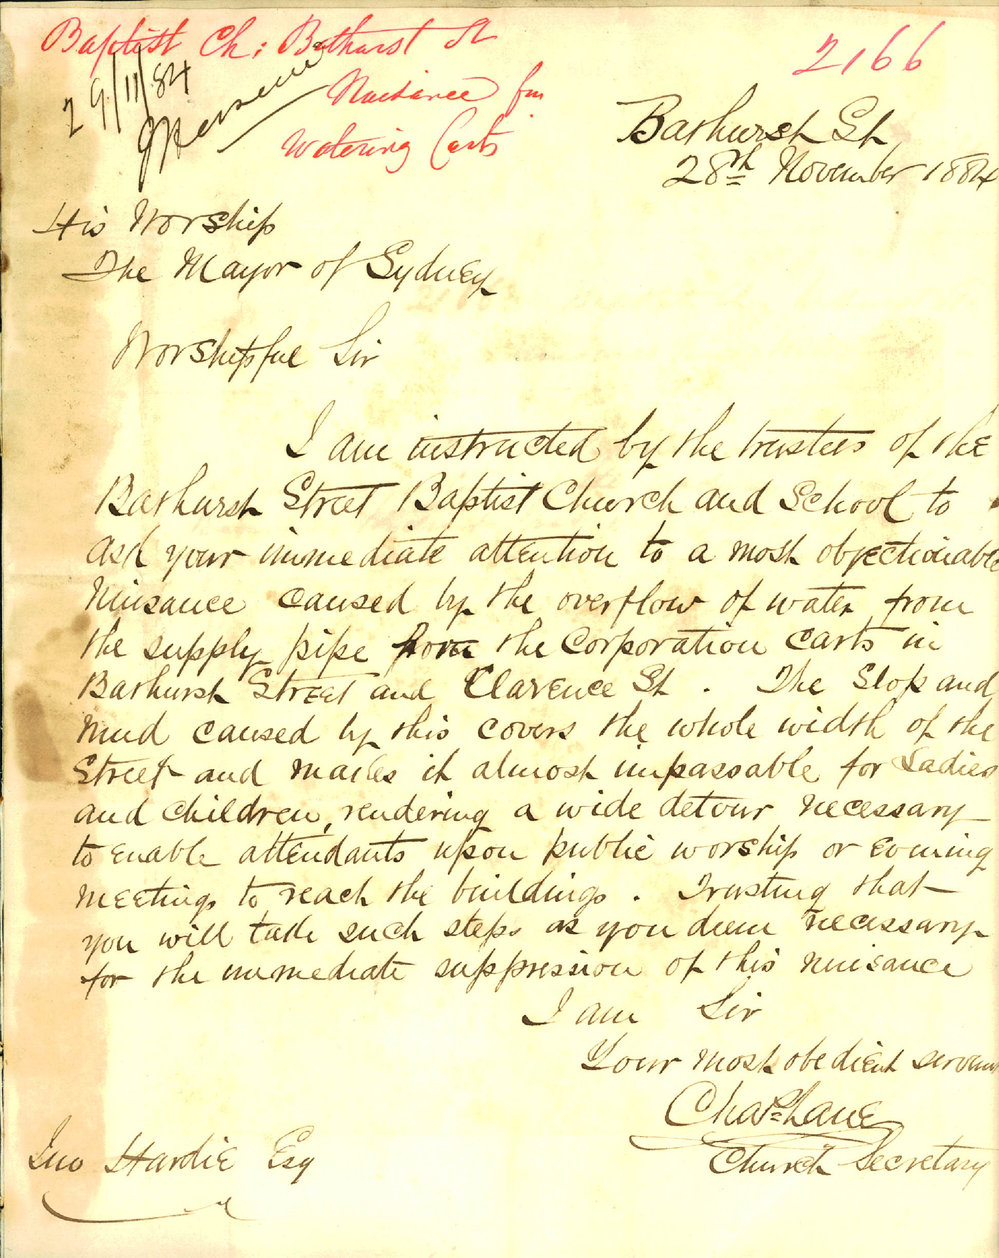 Baptist Ch: Bathurst St
2166
Nuisance fm
Watering Carts
29/11/84
Bathurst St
28th November 1884
His Worship
The Mayor of Sydney
Worshipful Sir
I am instructed by the trustees of the
Bathurst Street Baptist Church and School to
ask your immediate attention to a most objectionable
Nuisance caused by the overflow of water from
the supply pipe from the Corporation Carts in
Bathurst Street and Clarence St. The Slop and
mud caused by this covers the whole width of the
Street and makes it almost impassable for Ladies
and children, rendering a wide detour necessary
to enable attendants upon public worship or evening
meetings to reach the buildings. Trusting that
you will take such steps as you deem necessary
for the immediate suppression of this nuisance
I am Sir
Your most obedient servant
Chas Lane
Church Secretary
Jno Hardie Esq